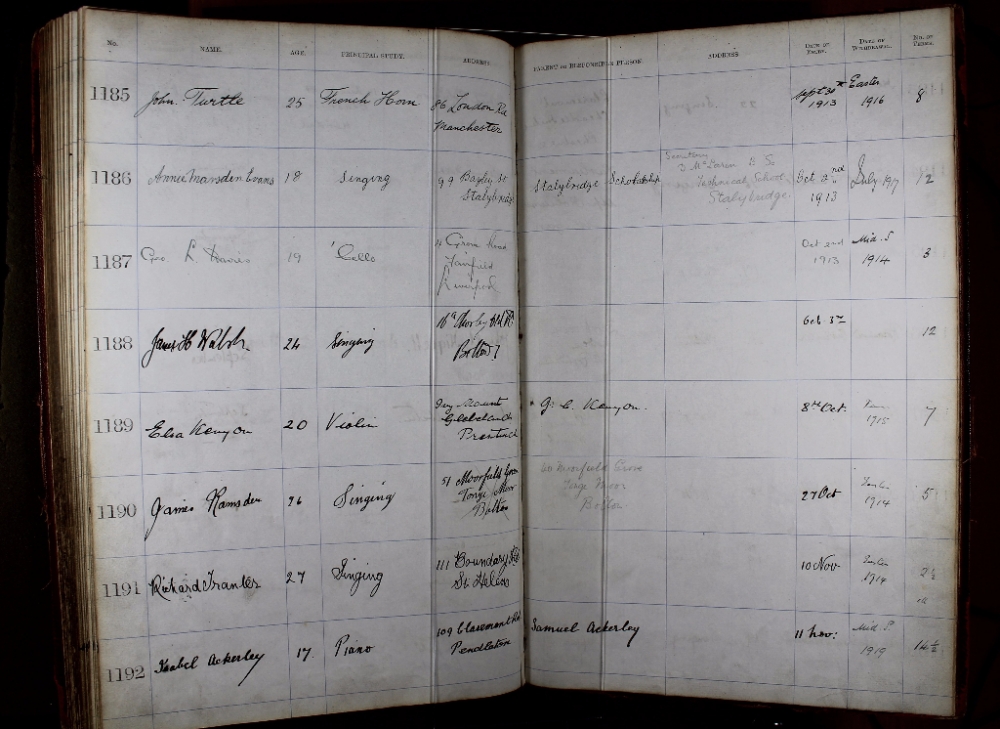 No. NAME. AGE. PRINCIPAL STUDY. ADDRESS. PARENT OR RESPONSIBLE PERSON. ADDRESS DATE OF ENTRY. DATE OF WITHDRAWAL. NO. OF TERMS.
1185 John Turtle 25 French Horn 86 London Rd Sept 30th Easter 8
Manchester 1913 1916
Secretary
1186 Annie Marsden Evans 18 Singing 99 Bayley St Stalybridge Scholarship Oct 2nd July 1917 12
Stalybridge Technical School 1913
Stalybridge.
1187 Geo. L. Davies 19 'Cello Oct 2nd Mid. S 3
Fairfield 1913 1914
Liverpool
1188 James H Walsh 24 Singing 16a Chorley Old Rd Oct 3rd 12
Bolton
1189 Elsa Kenyon 20 Violin Ivy Mount G. C. Kenyon. 8th Oct. 1915 7
Glebelands
Prestwich
1190 James Ramsden 26 Singing 51 Moorfield Grove 60 Moorfield Grove 27 Oct Easter 5
Tonge Moor Tonge Moor 1914
Bolton Bolton
1191 Richard Tranter 27 Singing 111 Boundary Rd 10 Nov Easter 2½
St Helens 1914
1192 Isabel Ackerley 17 Piano 109 Claremont Rd Samuel Ackerley 11 Nov: Mid. 14½
Pendleton 1919